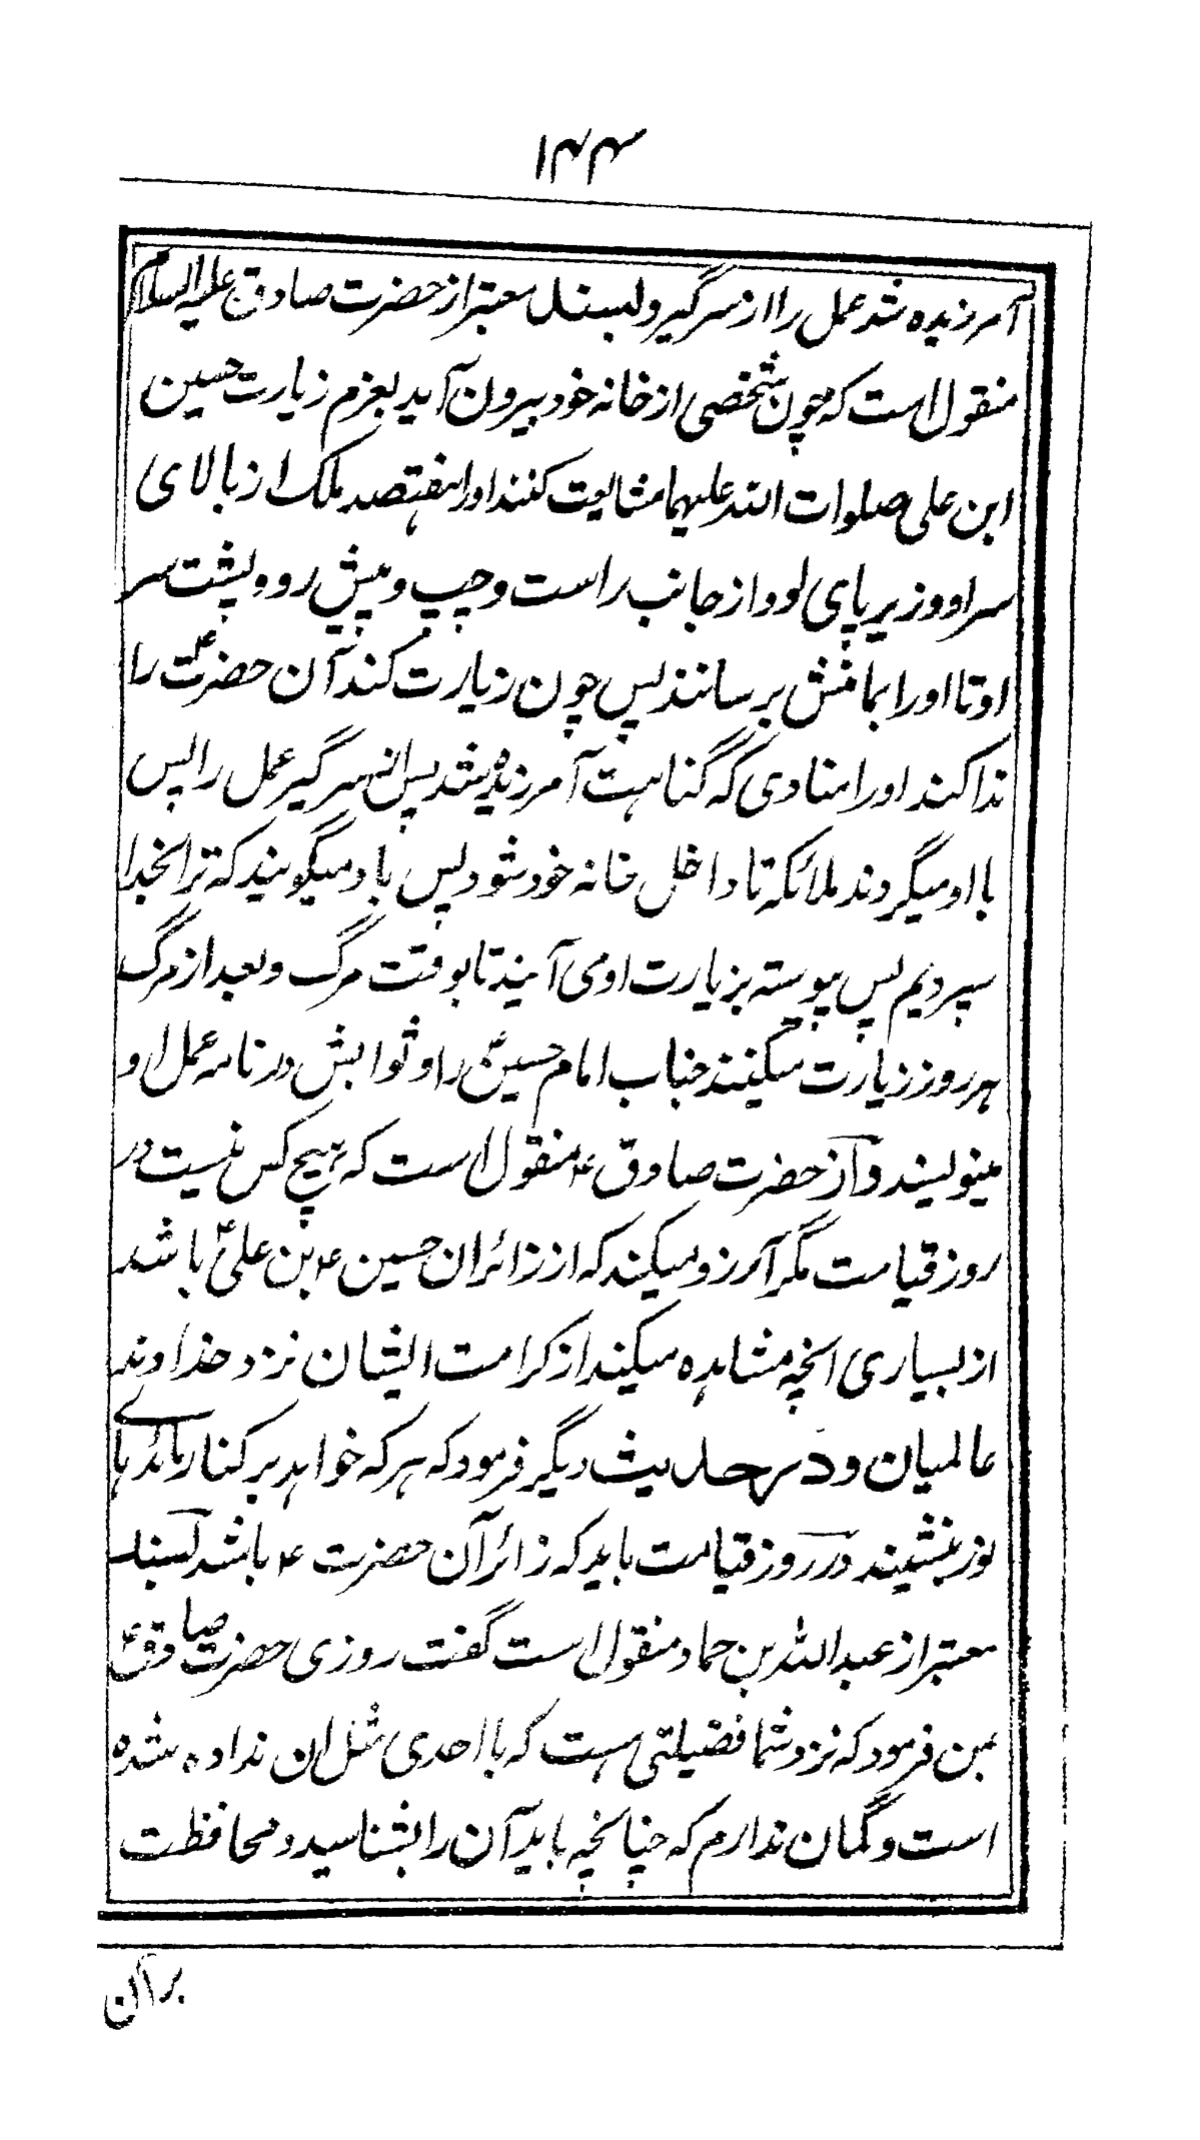 ۱۴۴
آمرزیده شد عمل را از سر گیر و بسند معتبر از حضرت صادق علیه السلام
منقول است که چون شخصی از خانه خود بیرون آید بعزم زیارت حسین
ابن علی صلوات الله علیهما مشایعت کنند او را هفتصد ملک از بالای
سر او و زیر پای او و از جانب راست و چپ و پیش رو و پشت سر
او تا او را بمامنش برسانند پس چون زیارت کند آن حضرت ع را
ندا کند او را منادی که گناهت آمرزیده شد پس از سر گیر عمل را پس
با او میگردند ملائکه تا داخل خانه خود شود پس باو میگویند که ترا بخدا
سپردیم پس پیوسته بزیارت او می آیند تا بوقت مرگ و بعد از مرگ
هر روز زیارت میکنند جناب امام حسین ع را و ثوابش در نامه عمل او
مینویسند و از حضرت صادق ع منقول است که هیچ کس نیست در
روز قیامت مگر آرزو میکند که از زائران حسین ع بن علی ع باشد
از بسیاری انچه مشاهده میکند از کرامت ایشان نزد خداوند
عالمیان و در حدیث دیگر فرمود که هر که خواهد بر کنار مائده های
نور بنشیند در روز قیامت باید که زائر آن حضرت ع باشد بسند
معتبر از عبد الله بن حماد منقول است گفت روزی حضرت صادق ع
بمن فرمود که نزد شما فضیلتی هست که با احدی مثل ان نداده شده
است و گمان ندارم که چنانچه باید آن را بشناسید و محافظت
بر آن